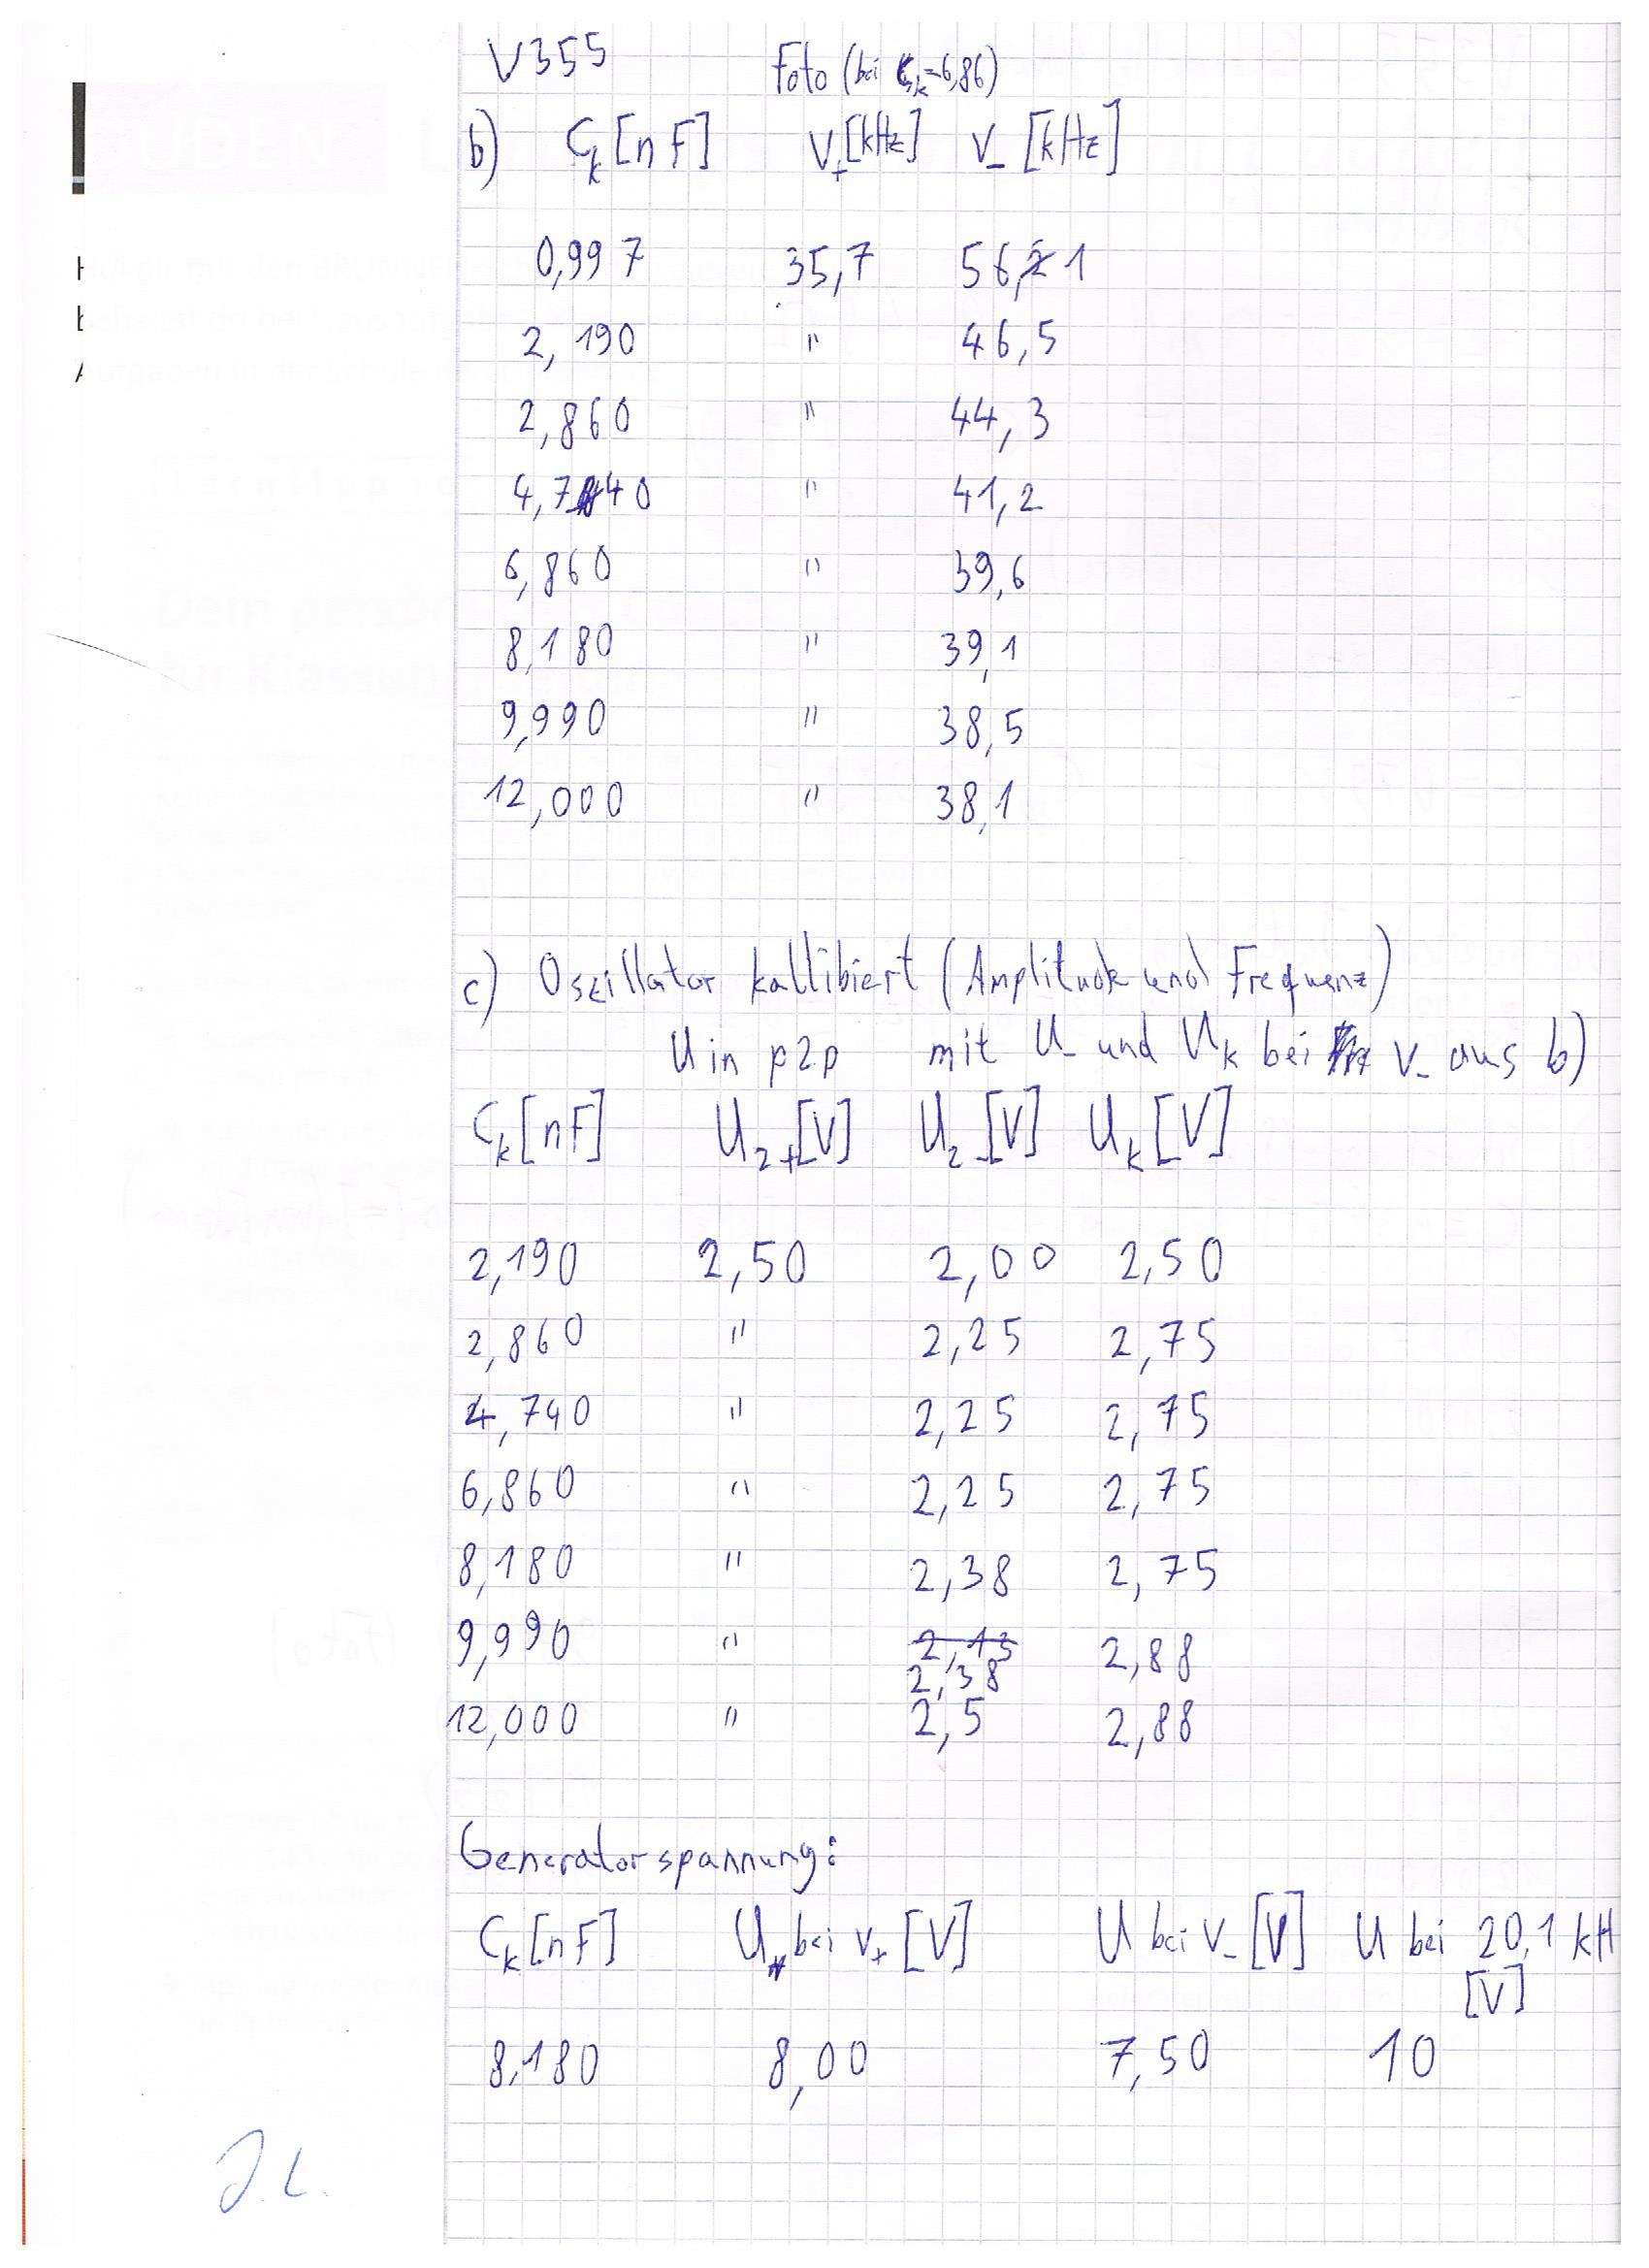 V355 Foto (bei Ck=6,86)
b) Ck [nF] ν+ [kHz] ν- [kHz]
0,997 35,7 56,1
2,190 " 46,5
2,860 " 44,3
4,740 " 41,2
6,860 " 39,6
8,180 " 39,1
9,990 " 38,5
12,000 " 38,1
c) Oszillator kallibiert (Amplitude und Frequenz)
U in p2p mit U- und Uk bei ν- aus b)
Ck [nF] U2+ [V] U2- [V] Uk [V]
2,190 2,50 2,00 2,50
2,860 " 2,25 2,75
4,740 " 2,25 2,75
6,860 " 2,25 2,75
8,180 " 2,38 2,75
9,990 " 2,13 2,88
2,38
12,000 " 2,5 2,88
Generatorspannung:
Ck [nF] U bei ν+ [V] U bei ν- [V] U bei 20,1 kH
[V]
8,180 8,00 7,50 10
J.L.